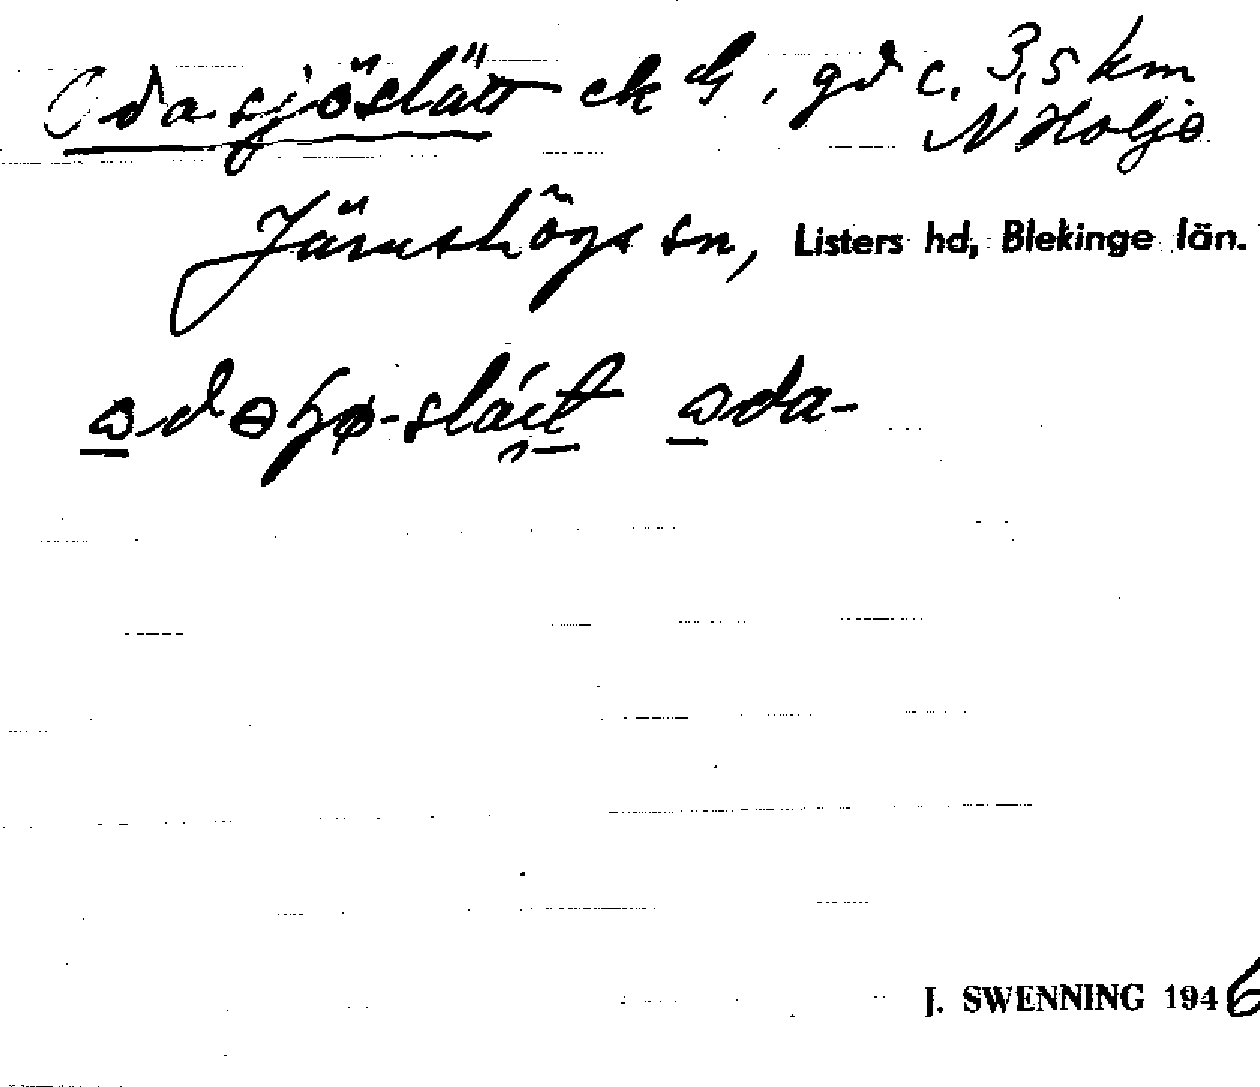 Odasjöslätt ek G, gd c. 3,5 km
N Holje
Järnshögs sn, Listers hd, Blekinge län.
J. SWENNING 1946